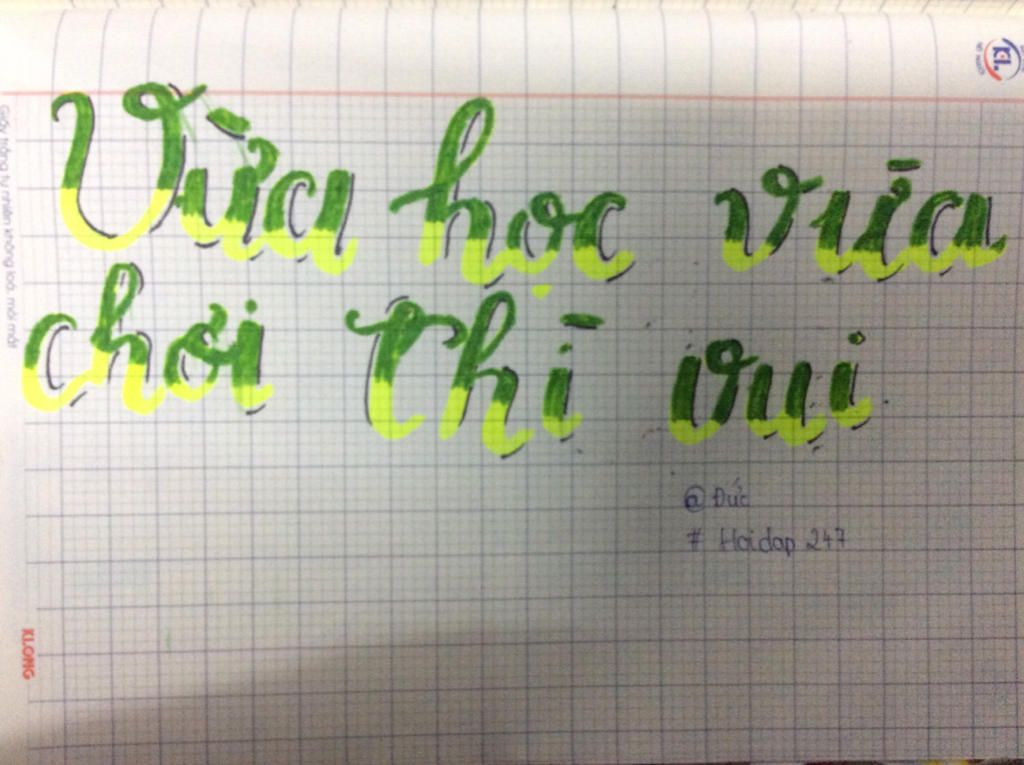 Vừa học vừa
chơi thì vui
@ Đức
# Hoidap 247
KLONG
Giấy trắng tự nhiên không loá, mỏi mắt
KL.